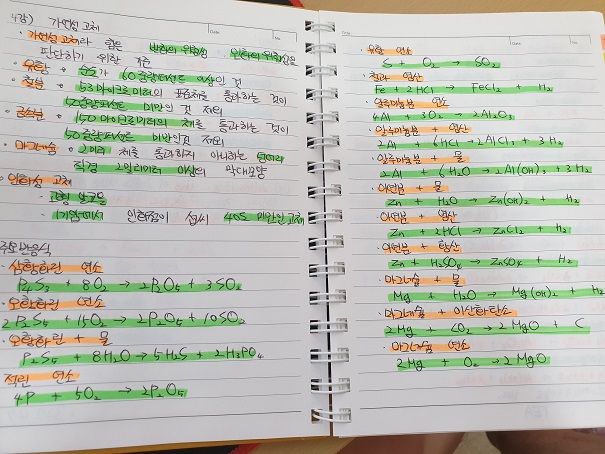 4강) 가연성 고체
· 가연성 고체라 함은 발화의 위험성 인화의 위험성은
판단하기 위한 기준
· 유황 · 순도가 60중량퍼센트 이상인 것
· 철분 · 53마이크로미터의 표준체를 통과하는 것이
50중량퍼센트 미만인 것 제외
· 금속분 · 150마이크로미터의 체를 통과하는 것이
50중량퍼센트 미만인것 제외
· 마그네슘 · 2미리 체를 통과하지 아니하는 덩어리
직경 2밀리미터 이상의 막대모양
· 인화성 고체
· 고형 알코올
· 1기압에서 인화점이 섭씨 40도 미만인 고체
주요반응식
· 삼황화린 연소
P₄S₃ + 8O₂ → 2P₂O₅ + 3SO₂
· 오황화린 연소
2P₂S₅ + 15O₂ → 2P₂O₅ + 10SO₂
· 오황화린 + 물
P₂S₅ + 8H₂O → 5H₂S + 2H₃PO₄
적린 연소
4P + 5O₂ → 2P₂O₅
Date No
· 유황 연소
S + O₂ → SO₂
· 철과 염산
Fe + 2HCl → FeCl₂ + H₂
· 알루미늄분 연소
4Al + 3O₂ → 2Al₂O₃
· 알루미늄분 + 염산
2Al + 6HCl → 2AlCl₃ + 3H₂
· 알루미늄분 + 물
2Al + 6H₂O → 2Al(OH)₃ + 3H₂
· 아연분 + 물
Zn + H₂O → Zn(OH)₂ + H₂
· 아연분 + 염산
Zn + 2HCl → ZnCl₂ + H₂
· 아연분 + 황산
Zn + H₂SO₄ → ZnSO₄ + H₂
· 마그네슘 + 물
Mg + H₂O → Mg(OH)₂ + H₂
· 마그네슘 + 이산화탄소
2Mg + CO₂ → 2MgO + C
· 마그네슘 연소
2Mg + O₂ → 2MgO